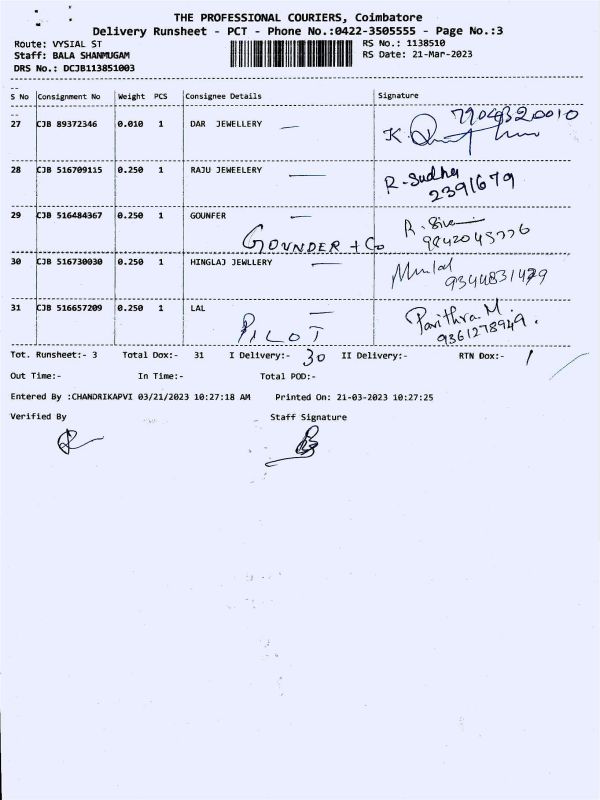 THE PROFESSIONAL COURIERS, Coimbatore
Delivery Runsheet - PCT - Phone No.:0422-3505555 - Page No.:3
Route: VYSIAL ST
Staff: BALA SHANMUGAM
DRS No.: DCJB113851003
RS No.: 1138510
RS Date: 21-Mar-2023
S No Consignment No Weight PCS Consignee Details Signature
27 CJB 89372346 0.010 1 DAR JEWELLERY 7904320010
K.
28 CJB 516709115 0.250 1 RAJU JEWEELERY R. Sudha
2391679
29 CJB 516484367 0.250 1 GOUNFER R. Siva
GOUNDER + Co 9842045776
30 CJB 516730030 0.250 1 HINGLAJ JEWLLERY
9344831479
31 CJB 516657209 0.250 1 LAL Pavithra M.
PILOT 9361278949.
Tot. Runsheet:- 3 Total Dox:- 31 I Delivery:- 30 II Delivery:- RTN Dox:- 1
Out Time:- In Time:- Total POD:-
Entered By :CHANDRIKAPVI 03/21/2023 10:27:18 AM Printed On: 21-03-2023 10:27:25
Verified By Staff Signature